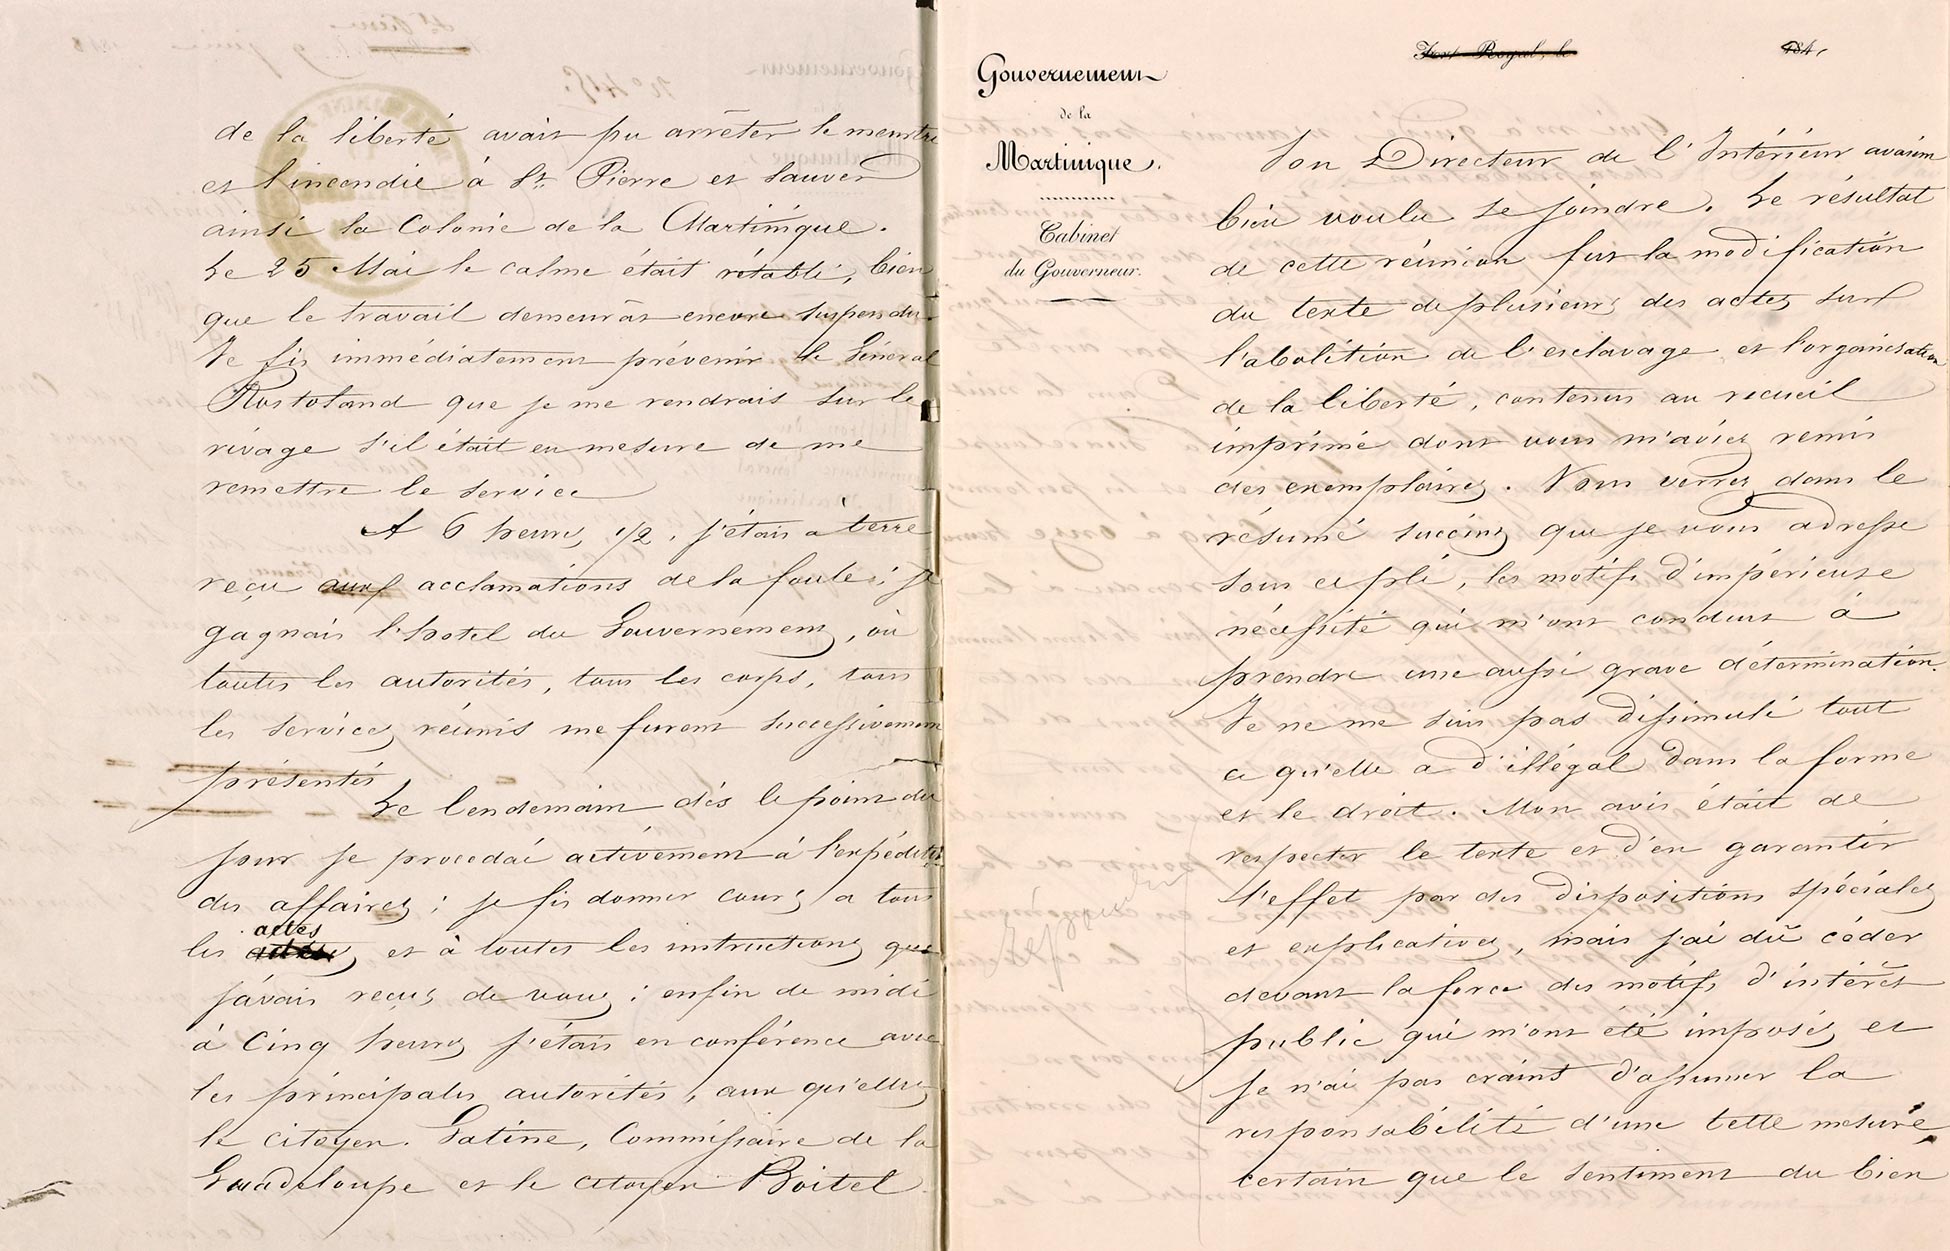 de la liberté avait pu arrêter le meurtre
et l'incendie à St. Pierre et sauver
ainsi la Colonie de la Martinique.
Le 25 Mai le calme était rétabli, bien
que le travail demeurât encore suspendu.
Je fis immédiatement prévenir le Général
Rostoland que je me rendrais sur le
rivage s'il était en mesure de me
remettre le service
A 6 heures 1/2, j'étais à terre
reçu aux acclamations de la foule; je
gagnais l'hotel du Gouvernement, où
toutes les autorités, tous les corps, tous
les services réunis me furent successivement
présentés
Le lendemain dès le point du
jour je procédai activement à l'expédition
des affaires; je fis donner cours a tous
actes
les et à toutes les instructions que
j'avais reçus de vous; enfin de midi
à Cinq heures j'étais en conférence avec
les principales autorités, aux qu'elles
le citoyen Gatine, Commissaire de la
Guadeloupe et le citoyen Boitel
Fort Royal, le 184
Gouvernement
de la
Martinique.
Cabinet
du Gouverneur.
Son Directeur de l'Intérieur avaient
bien voulu se joindre. Le résultat
de cette réunion fut la modification
du texte de plusieurs des actes sur
l'abolition de l'esclavage et l'organisation
de la liberté, contenus au recueil
imprimé dont vous m'aviez remis
des exemplaires. Vous verrez dans le
résumé succinct que je vous adresse
sous ce pli, les motifs d'impérieuse
nécessité qui m'ont conduit à
prendre une aussi grave détermination.
Je ne me suis pas dissimulé tout
ce qu'elle a d'illégal dans la forme
et le droit. Mon avis était de
respecter le texte et d'en garantir
l'effet par des dispositions spéciales
et explicatives, mais j'ai dû céder
devant la force des motifs d'intérêt
public qui m'ont été imposés et
je n'ai pas craint d'assumer la
responsabilité d'une telle mesure,
certain que le sentiment du bien